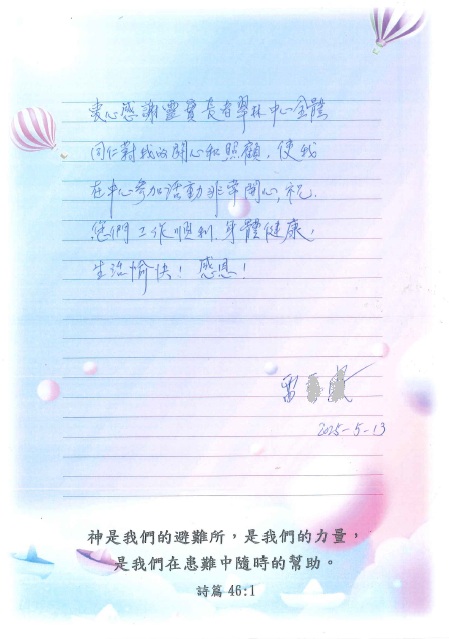 衷心感謝靈實長者翠林中心全體
同仁對我的關心和照顧，使我
在中心參加活動非常開心，祝
您們工作順利，身體健康，
生活愉快！感恩！
雷
2025-5-13
神是我們的避難所，是我們的力量，
是我們在患難中隨時的幫助。
詩篇 46:1